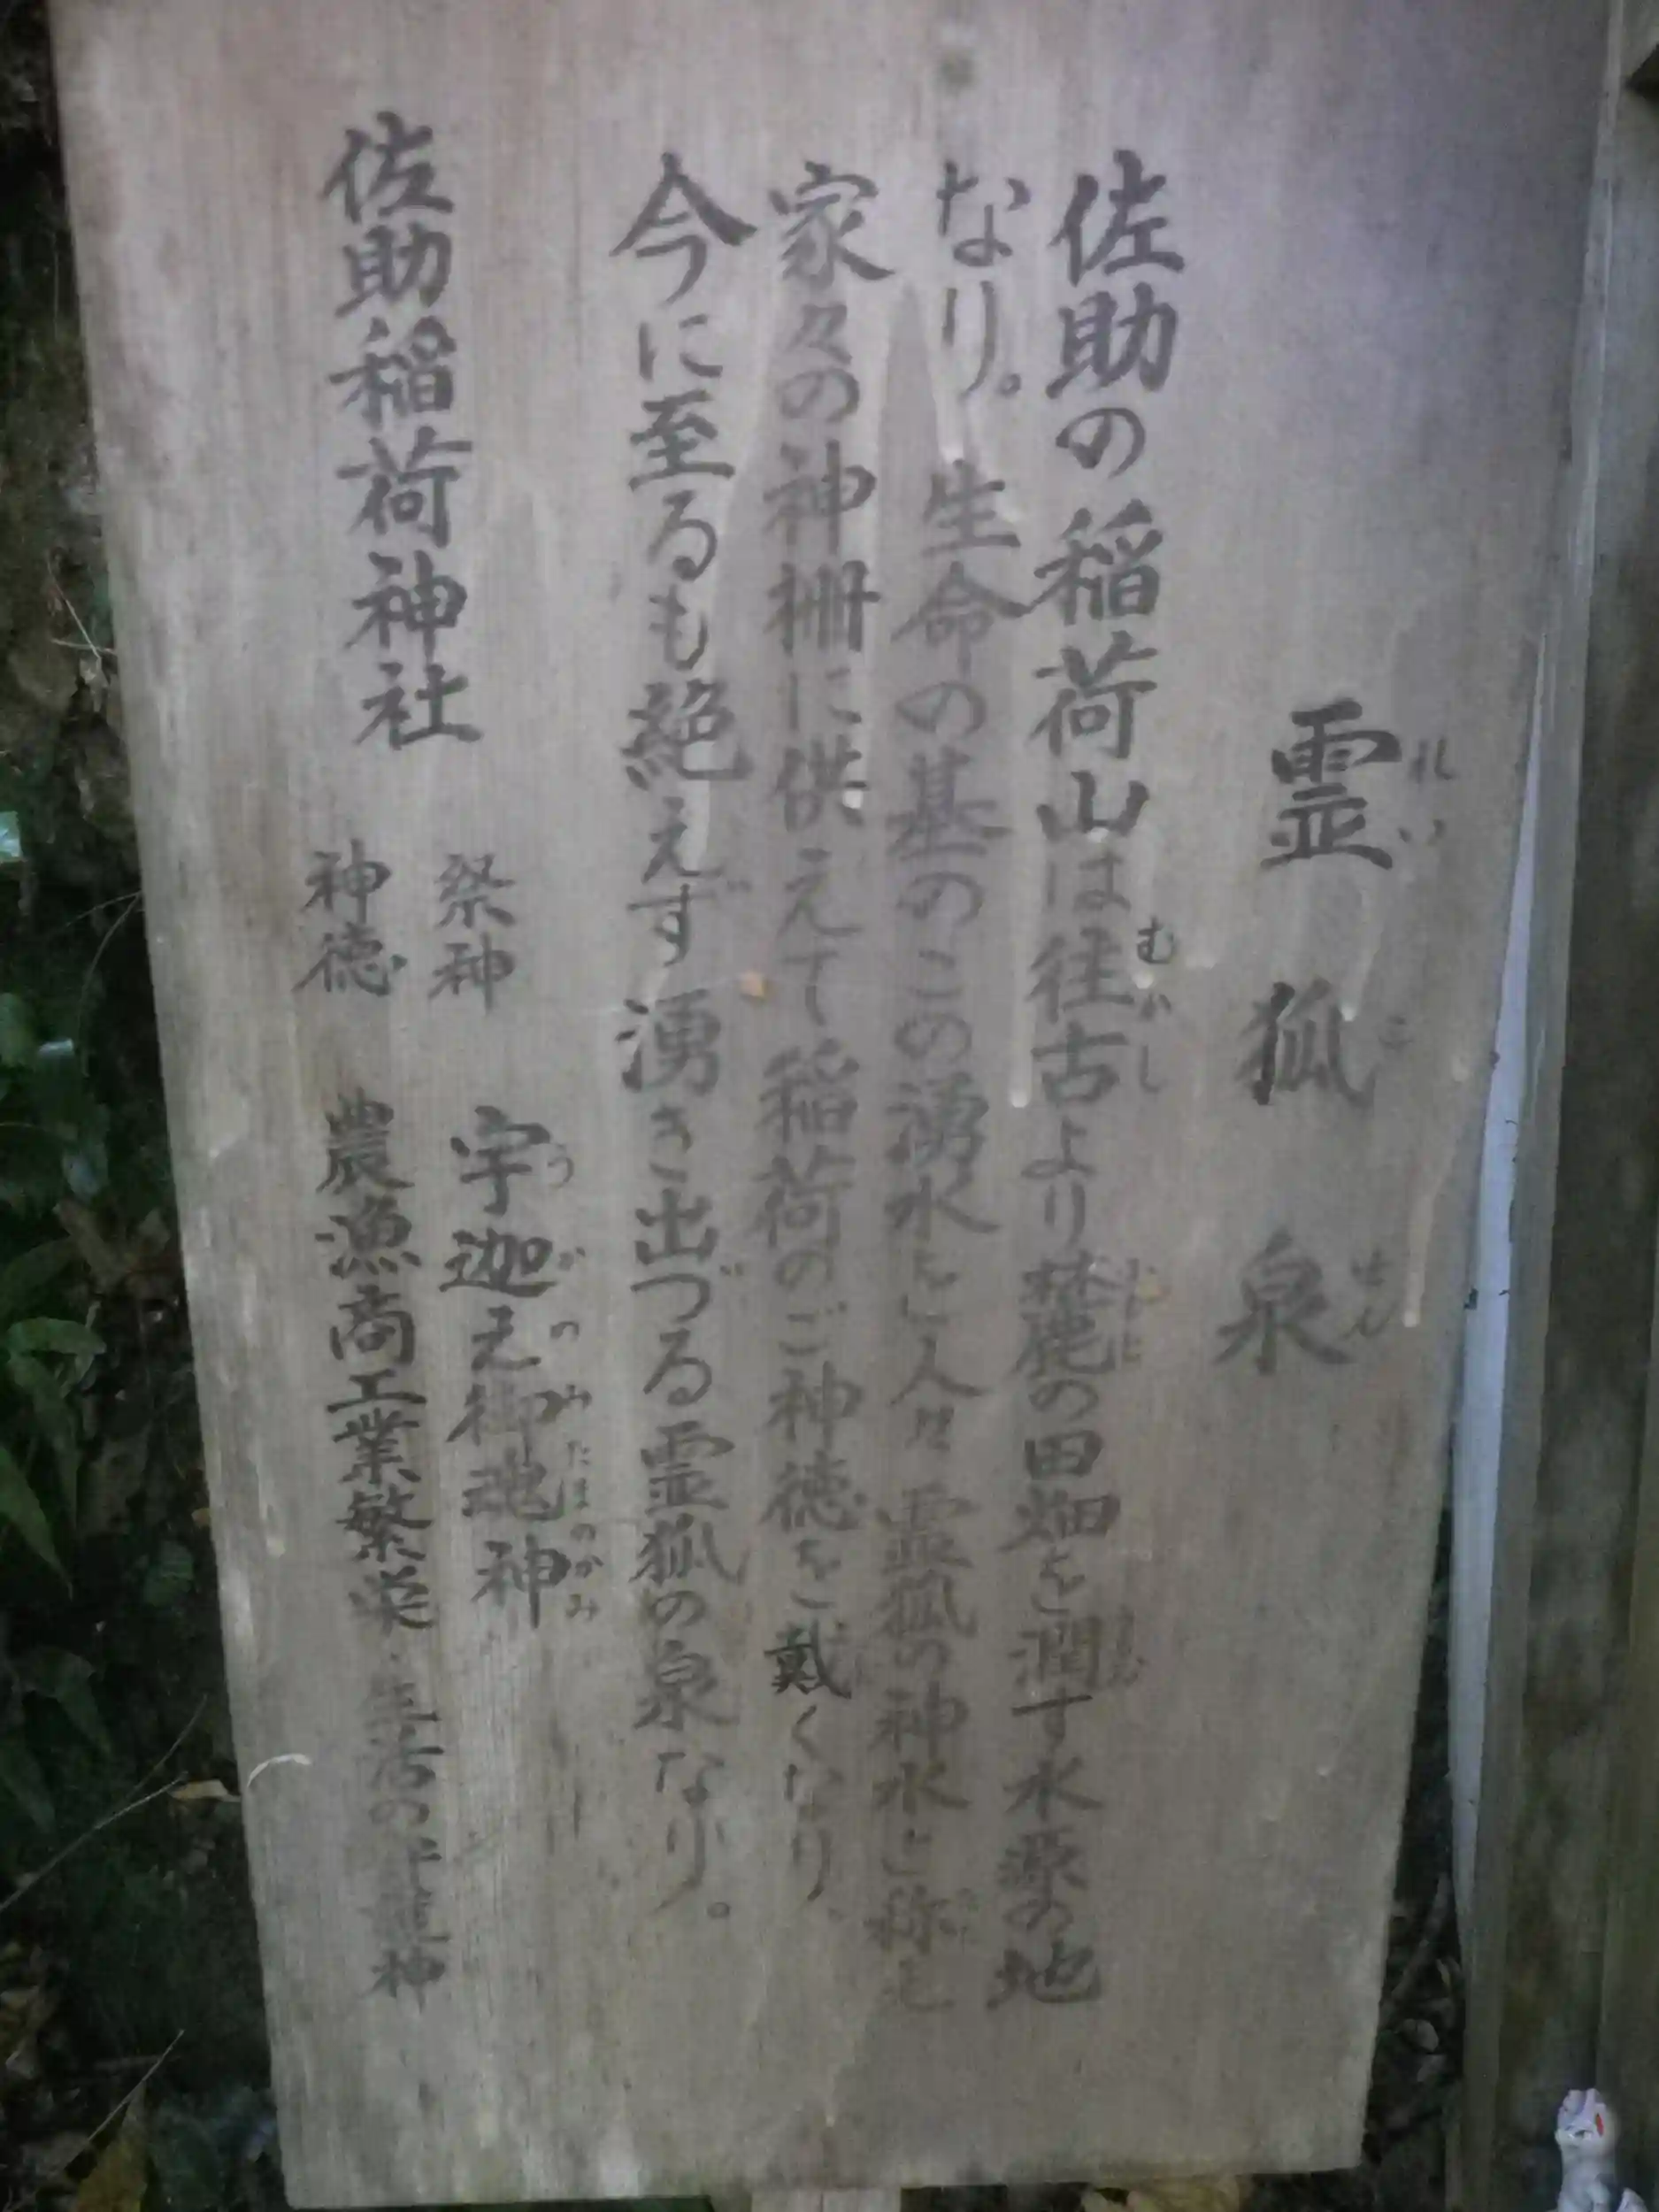 霊狐泉
れいこせん
佐助の稲荷山は往古より麓の田畑を潤す水源の地
むかし
なり。生命の基のこの湧水を人々霊狐の神水と称し
家々の神柵に供えて稲荷のご神徳を戴くなり、
今に至るも絶えず湧き出づる霊狐の泉なり。
佐助稲荷神社
祭神 宇迦之御魂神
うがのみたまのかみ
神徳 農漁商工業繁栄・生活の守護神